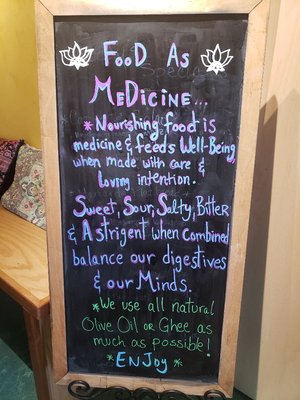 FooD As
MeDicine...
*Nourishing food is
medicine & feeds Well-Being
when made with care &
Loving intention.
Sweet, Sour, Salty, Bitter
& Astrigent when combined
balance our digestives
& our Minds.
*We use all natural
Olive Oil or Ghee as
much as possible!
*ENJoy*